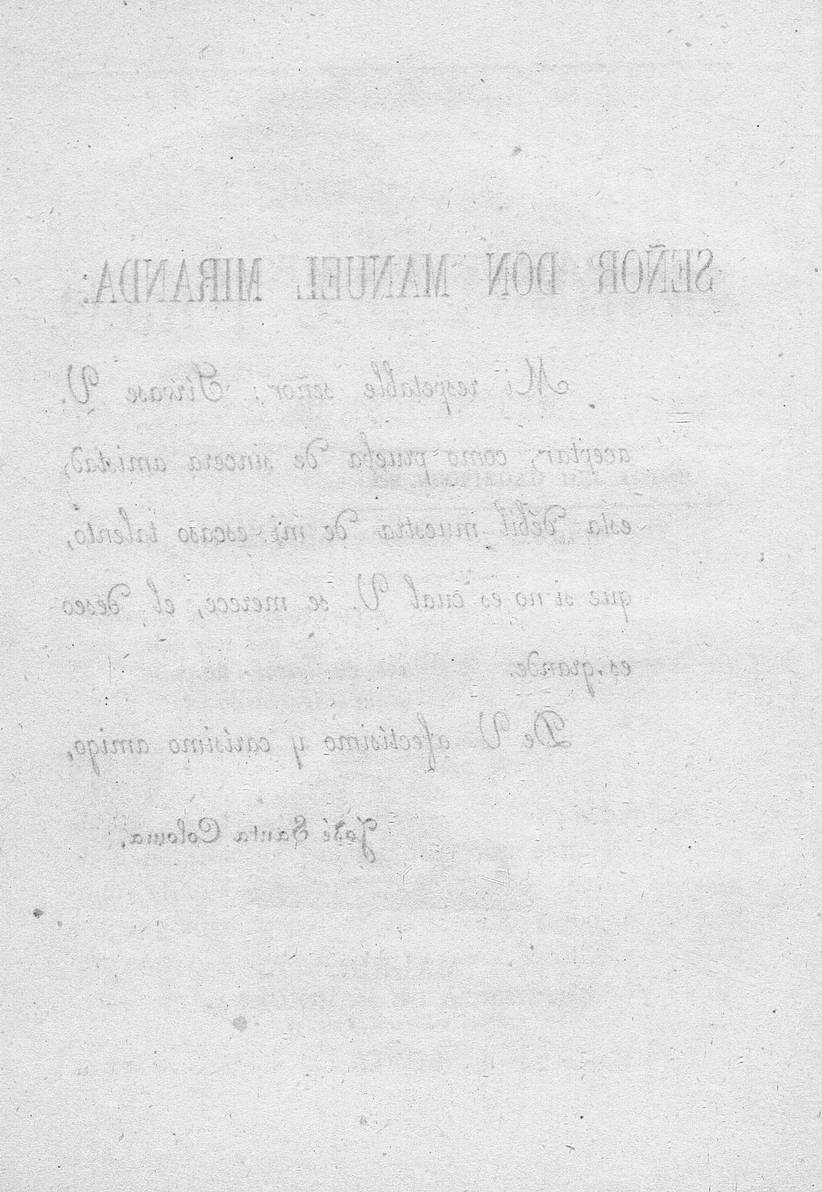 SEÑOR DON MANUEL MIRANDA:
Mi respetable señor: Sírvase V.
aceptar, como prueba de sincera amistad,
esta débil muestra de mi escaso talento,
que si no es cual V. se merece, el deseo
es grande.
De V. afectísimo y carísimo amigo,
José Santa Coloma.